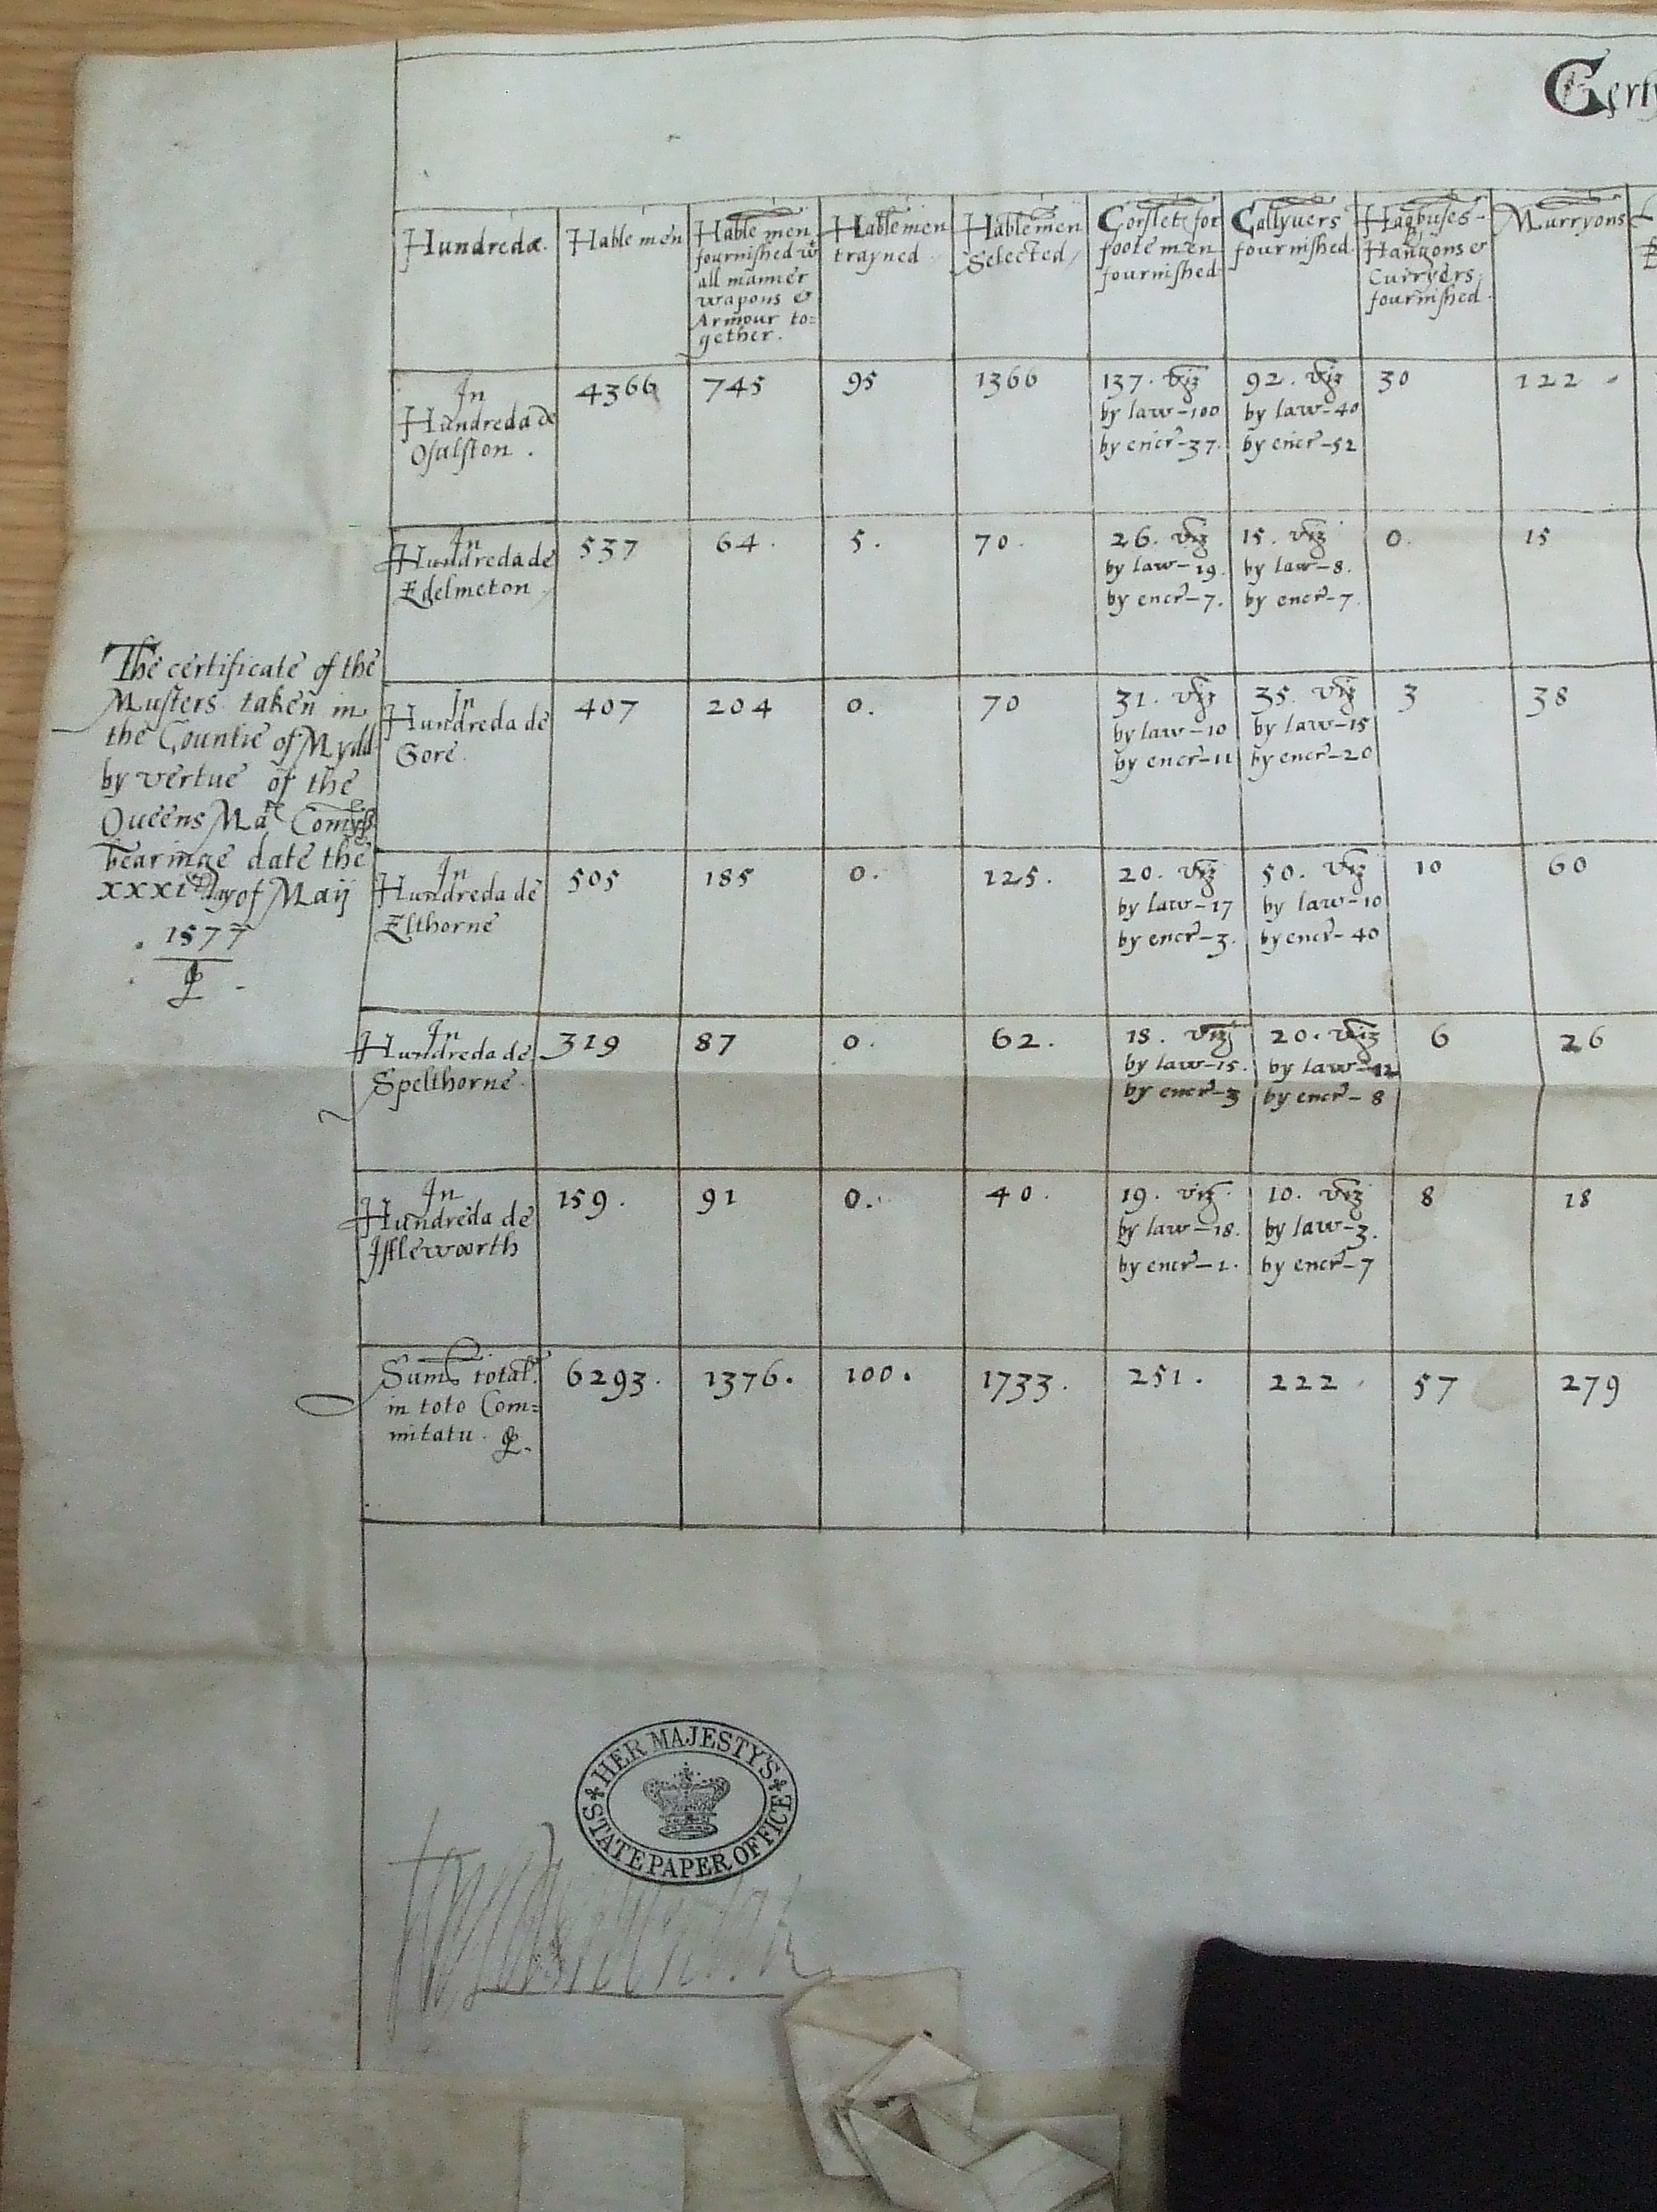 Hundredæ
Hable men
Hable men
fournished wt
all manner
wapons &
Armour to=
gether.
Hable men
trayned
Hable men
Selected
Corslets for
foote men
fournished
Callyuers
fournished
Hagbuses
Hangons &
Curryers
fournished
Murryons
In
Hundreda de
Osulston.
4366
745
95
1366
137. viz
by law-100
by encr-37.
92. viz
by law-40
by encr-52
30
122
In
Hundreda de
Edelmeton
537
64.
5.
70.
26. viz
by law-19.
by encr-7.
15. viz
by law-8.
by encr-7.
0.
15
In
Hundreda de
Gore.
407
204
0.
70
31. viz
by law-10
by encr-11
35. viz
by law-15
by encr-20
3
38
In
Hundreda de
Elthorne
505
185
0.
125.
20. viz
by law-17
by encr-3.
50. viz
by law-10
by encr-40
10
60
In
Hundreda de
Spelthorne.
319
87
0.
62.
18. viz
by law-15.
by encr-3
20. viz
by law-12
by encr-8
6
26
In
Hundreda de
Istleworth
159.
91
0.
40.
19. viz
by law-18.
by encr-1.
10. viz
by law-3.
by encr-7
8
18
Sum total
in toto Com=
mitatu.
6293.
1376.
100.
1733.
251.
222
57
279
The certificate of the
Musters taken in
the Countie of Mydd
by vertue of the
Queens Mate Comyss
bearinge date the
xxxith day of Maij
1577
HER MAJESTY'S
STATE PAPER OFFICE